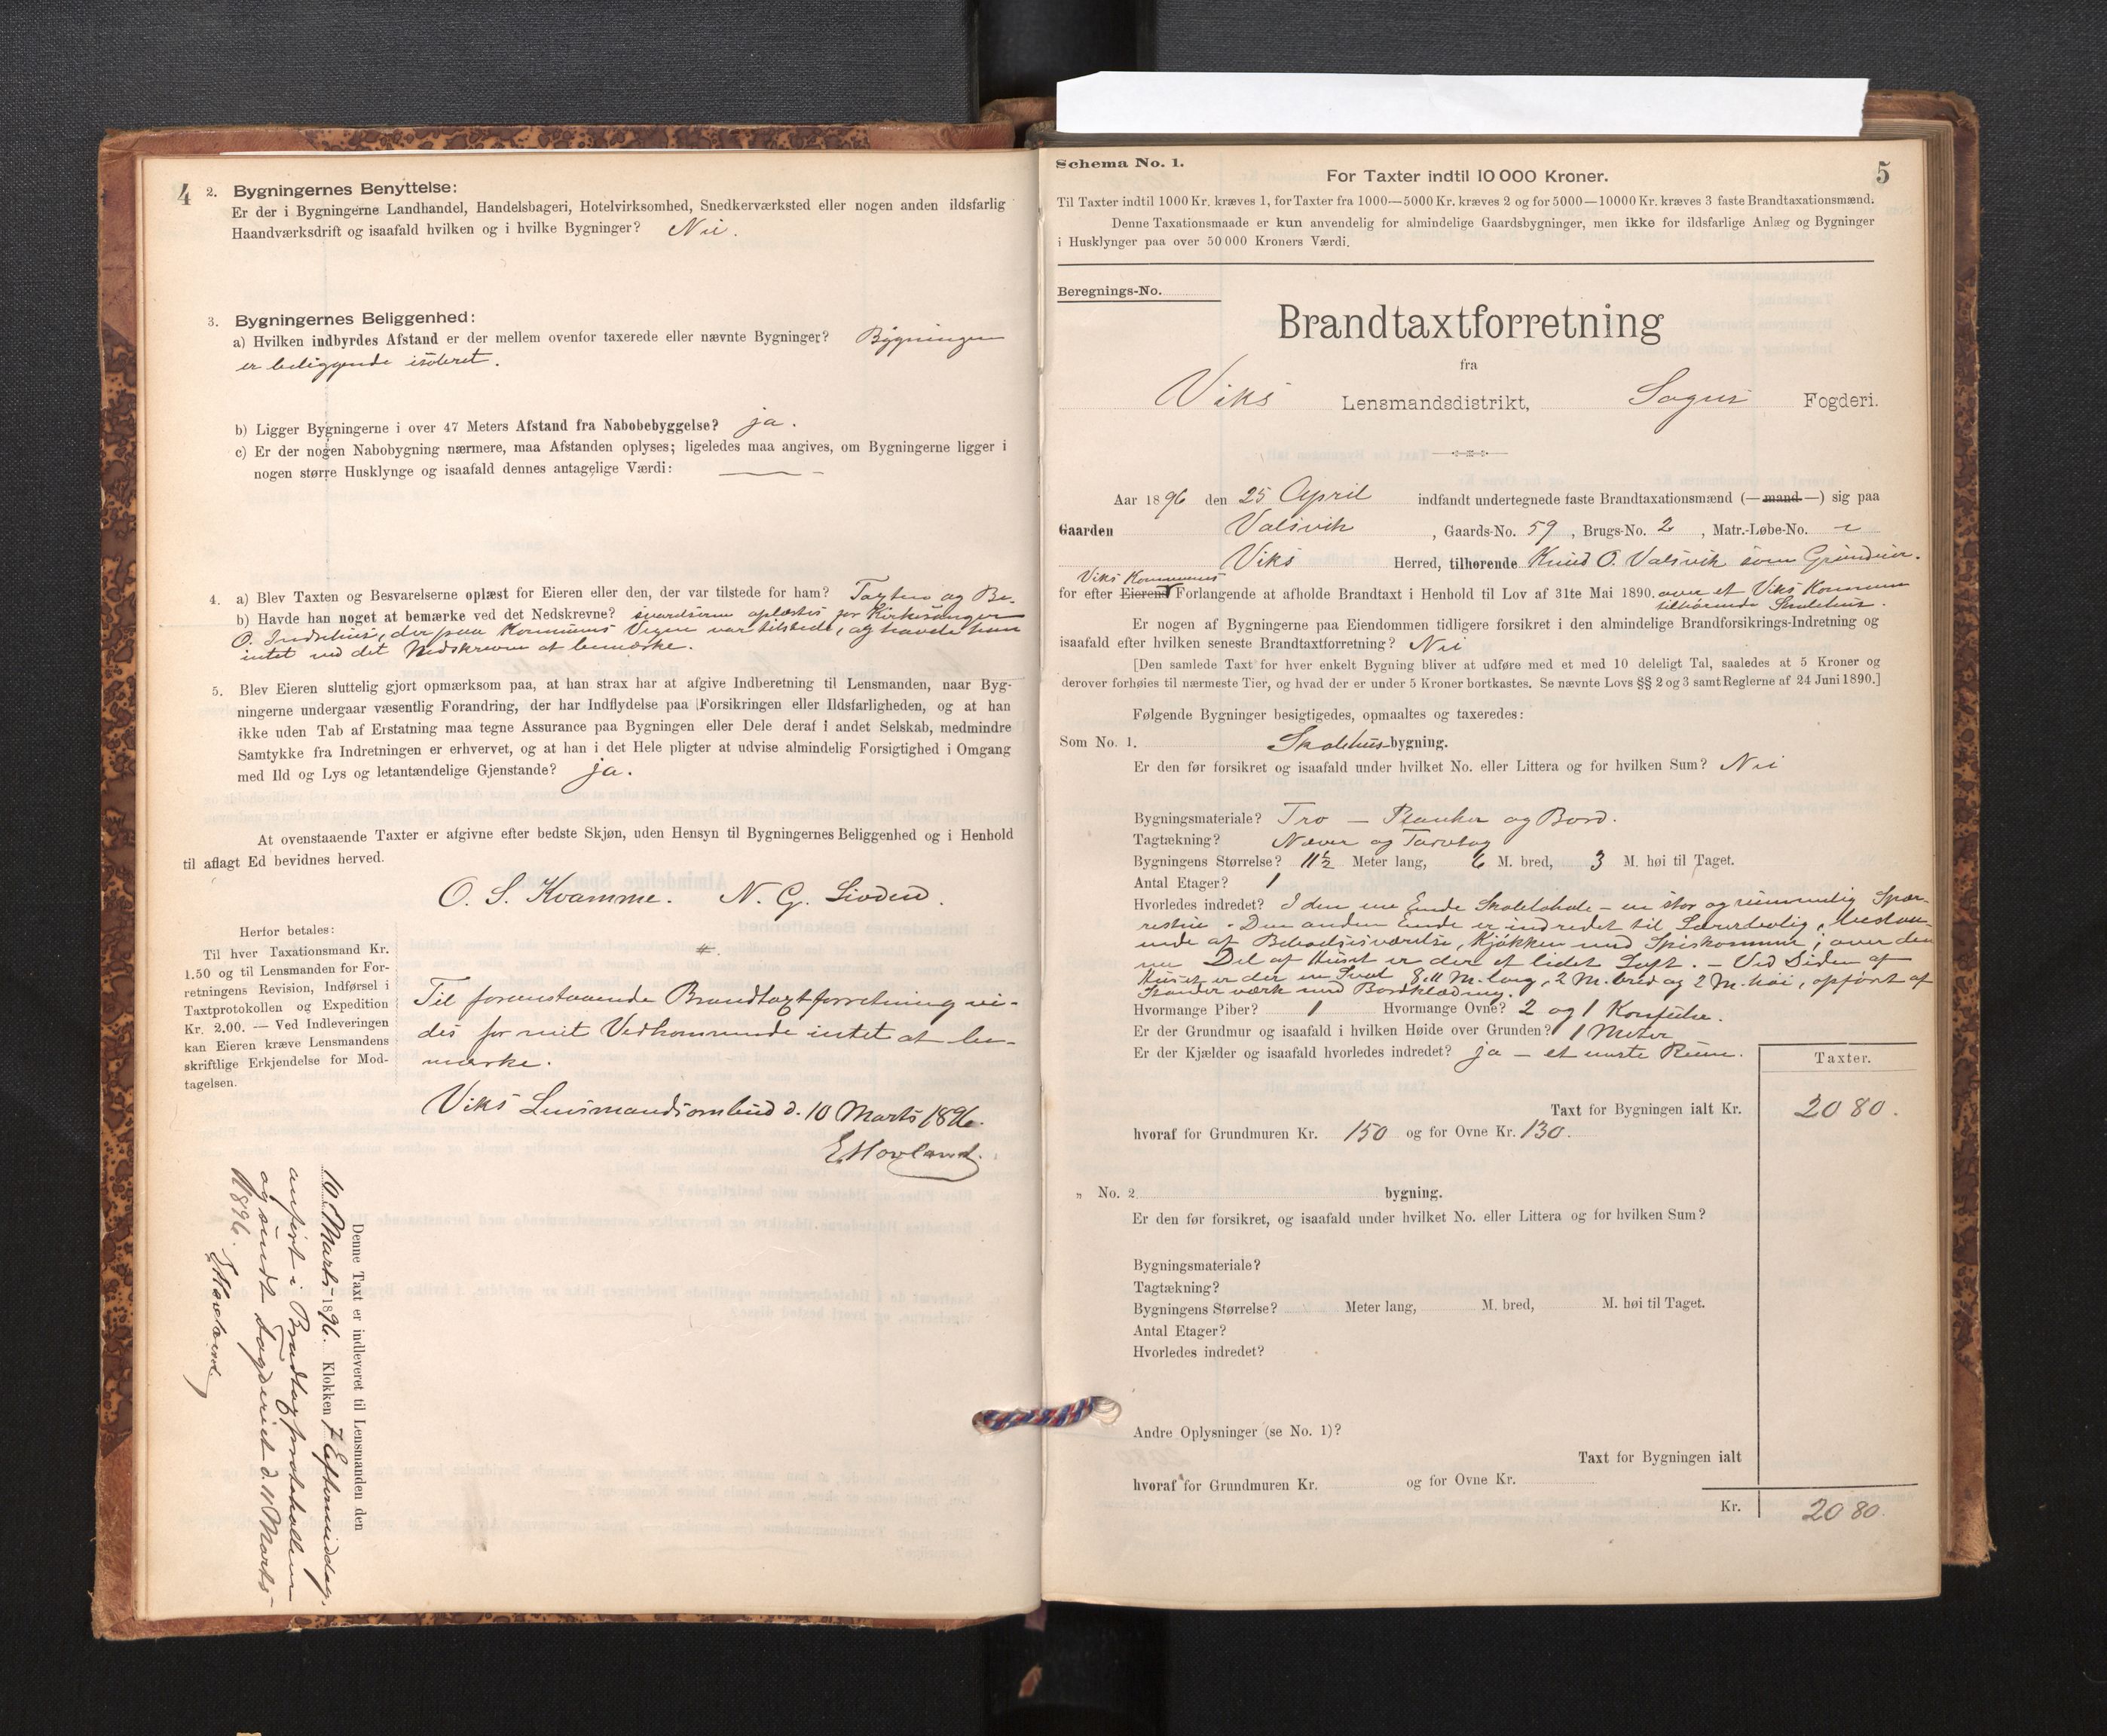 4
2. Bygningernes Benyttelse:
Er der i Bygningerne Landhandel, Handelsbageri, Hotelvirksomhed, Snedkerværksted eller nogen anden ildsfarlig
Haandværksdrift og isaafald hvilken og i hvilke Bygninger? Nei.
3. Bygningernes Beliggenhed:
a) Hvilken indbyrdes Afstand er der mellem ovenfor taxerede eller nævnte Bygninger? Bygningen
er beliggende isoleret.
b) Ligger Bygningerne i over 47 Meters Afstand fra Nabobebyggelse? ja.
c) Er der nogen Nabobygning nærmere, maa Afstanden oplyses; ligeledes maa angives, om Bygningerne ligger i
nogen større Husklynge og isaafald dennes antagelige Værdi: —
4. a) Blev Taxten og Besvarelserne oplæst for Eieren eller den, der var tilstede for ham? Taxten og Be-
b) Havde han noget at bemærke ved det Nedskrevne? svarelserne oplæstes for Kirkesanger
O. Indrehus, der paa Kommunens Vegne var tilstede, og havde han
intet ved det Nedskrevne at bemærke.
5. Blev Eieren sluttelig gjort opmærksom paa, at han strax har at afgive Indberetning til Lensmanden, naar Byg-
ningerne undergaar væsentlig Forandring, der har Indflydelse paa Forsikringen eller Ildsfarligheden, og at han
ikke uden Tab af Erstatning maa tegne Assurance paa Bygningen eller Dele deraf i andet Selskab, medmindre
Samtykke fra Indretningen er erhvervet, og at han i det Hele pligter at udvise almindelig Forsigtighed i Omgang
med Ild og Lys og letantændelige Gjenstande? ja.
At ovenstaaende Taxter er afgivne efter bedste Skjøn, uden Hensyn til Bygningernes Beliggenhed og i Henhold
til aflagt Ed bevidnes herved.
O. S. Kvamme. N. G.
Herfor betales:
Til hver Taxationsmand Kr.
1.50 og til Lensmanden for For-
retningens Revision, Indførsel i
Taxtprotokollen og Expedition
Kr. 2.00. — Ved Indleveringen
kan Eieren kræve Lensmandens
skriftlige Erkjendelse for Mod-
tagelsen.
Til foranstaaende Brandtaxtforretning vi-
des for mit Vedkommende intet at be-
mærke.
Viks Lensmandsombud d. 10 Marts 1896.
E Hovland.
Denne Taxt er indleveret til Lensmanden den
10 Marts 1896. Klokken 7 Eftermiddag,
anført i Brandtaxtprotokollen
og sendt Fogderiet d. 11 Marts
1896. E Hovland
Schema No. 1.
5
For Taxter indtil 10 000 Kroner.
Til Taxter indtil 1000 Kr. kræves 1, for Taxter fra 1000—5000 Kr. kræves 2 og for 5000—10000 Kr. kræves 3 faste Brandtaxationsmænd.
Denne Taxationsmaade er kun anvendelig for almindelige Gaardsbygninger, men ikke for ildsfarlige Anlæg og Bygninger
i Husklynger paa over 50 000 Kroners Værdi.
Beregnings-No.
Brandtaxtforretning
fra
Viks Lensmandsdistrikt, Sogns Fogderi.
Aar 1896 den 25 April indfandt undertegnede faste Brandtaxationsmænd (— mand —) sig paa
Gaarden Valsvik, Gaards-No. 59, Brugs-No. 2, Matr.-Løbe-No. –
Viks Herred, tilhørende Knud O. Valsvik som Grundeier.
Viks Kommunes
for efter Eierens Forlangende at afholde Brandtaxt i Henhold til Lov af 31te Mai 1890. over et Viks Kommune
tilhørende Skolehus.
Er nogen af Bygningerne paa Eiendommen tidligere forsikret i den almindelige Brandforsikrings-Indretning og
isaafald efter hvilken seneste Brandtaxtforretning? Nei
[Den samlede Taxt for hver enkelt Bygning bliver at udføre med et med 10 deleligt Tal, saaledes at 5 Kroner og
derover forhøies til nærmeste Tier, og hvad der er under 5 Kroner bortkastes. Se nævnte Lovs §§ 2 og 3 samt Reglerne af 24 Juni 1890.]
Følgende Bygninger besigtigedes, opmaaltes og taxeredes:
Som No. 1. Skolehus-bygning.
Er den før forsikret og isaafald under hvilket No. eller Littera og for hvilken Sum? Nei
Bygningsmateriale? Træ — Planker og Bord.
Tagtækning? Næver og Torvtag
Bygningens Størrelse? 11½ Meter lang, 6 M. bred, 3 M. høi til Taget.
Antal Etager? 1
Hvorledes indredet? I den ene Ende Skolelokale — en stor og rummelig Spør-
restue. Den anden Ende er indredet til Lærerbolig, bestaa-
ende af Beboelsesværelse, Kjøkken med Spiskammer; over den
ne Del af Huset er der et lidet Loft. — Ved Siden af
Huset er der en Sval 8,11 M. lang, 2 M. bred og 2 M. høi, opført af
Stænderværk med Bordklædning.
Hvormange Piber? 1 Hvormange Ovne? 2 og 1 Komfur.
Er der Grundmur og isaafald i hvilken Høide over Grunden? 1 Meter
Er der Kjælder og isaafald hvorledes indredet? ja — et murte Rum.
Taxter.
Taxt for Bygningen ialt Kr. 2080.
hvoraf for Grundmuren Kr. 150 og for Ovne Kr. 130.
„ No. 2 bygning.
Er den før forsikret, og isaafald under hvilket No. eller Littera og for hvilken Sum?
Bygningsmateriale?
Tagtækning?
Bygningens Størrelse? Meter lang, M. bred, M. høi til Taget.
Antal Etager?
Hvorledes indredet?
Andre Oplysninger (se No. 1)?
Taxt for Bygningen ialt
hvoraf for Grundmuren Kr. og for Ovne Kr.
Kr. 2080.